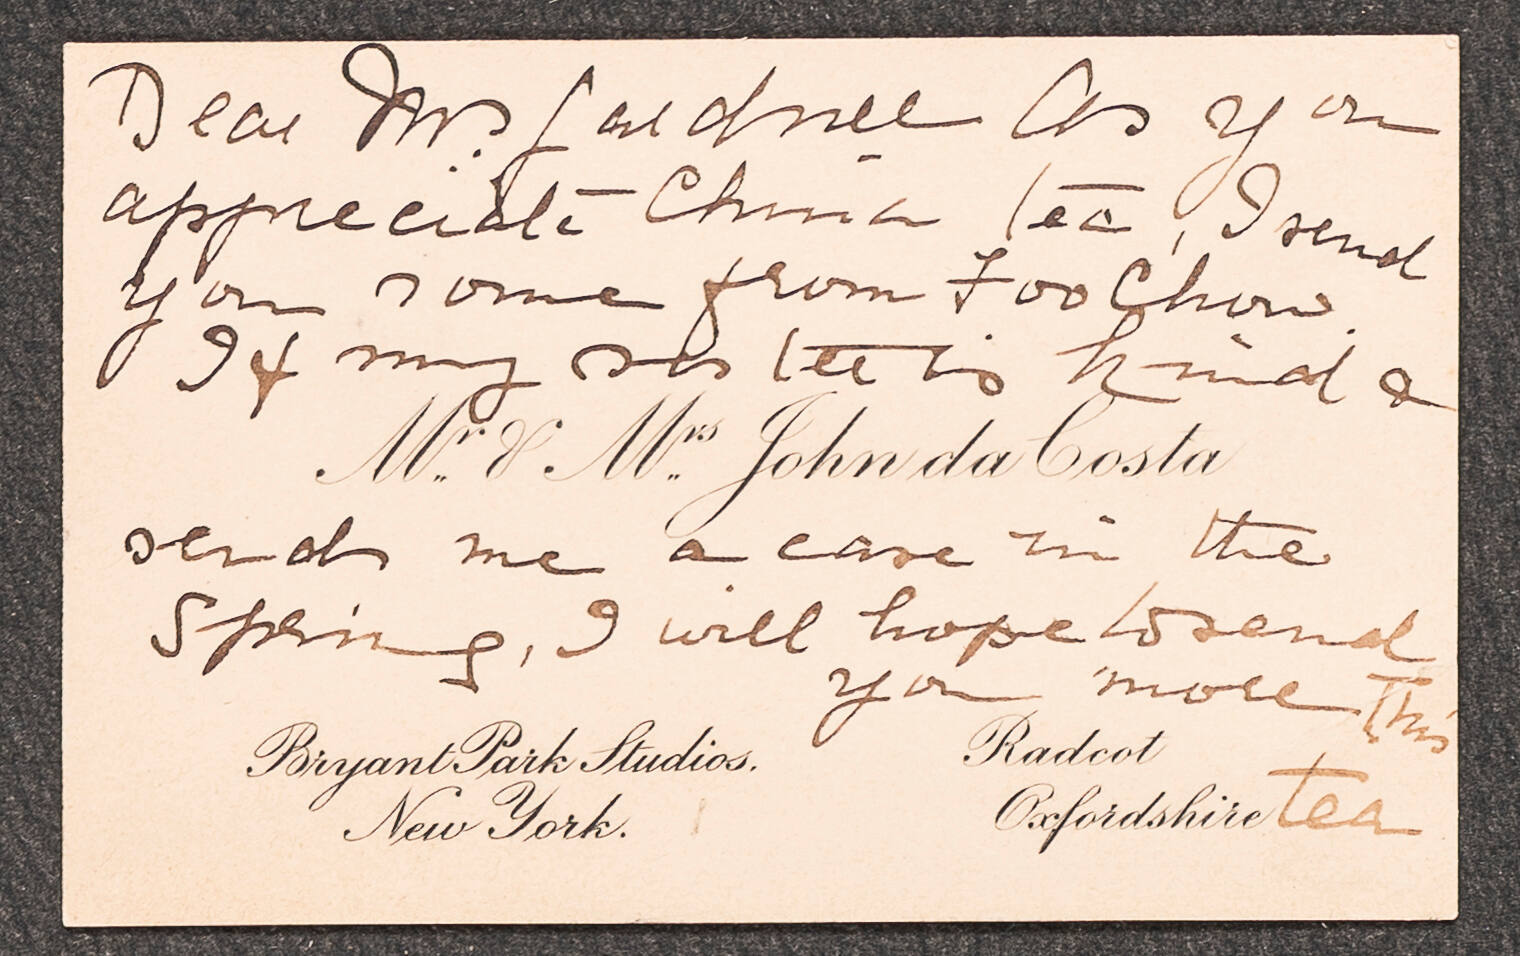 Dear Mrs. Gardner As you
appreciate China tea, I send
you some from Foo Chow.
If my sister is kind &
Mr. & Mrs. John da Costa
sends me a case in the
Spring, I will hope to send
you more This
Bryant Park Studios.
New York.
Radcot
Oxfordshire
tea